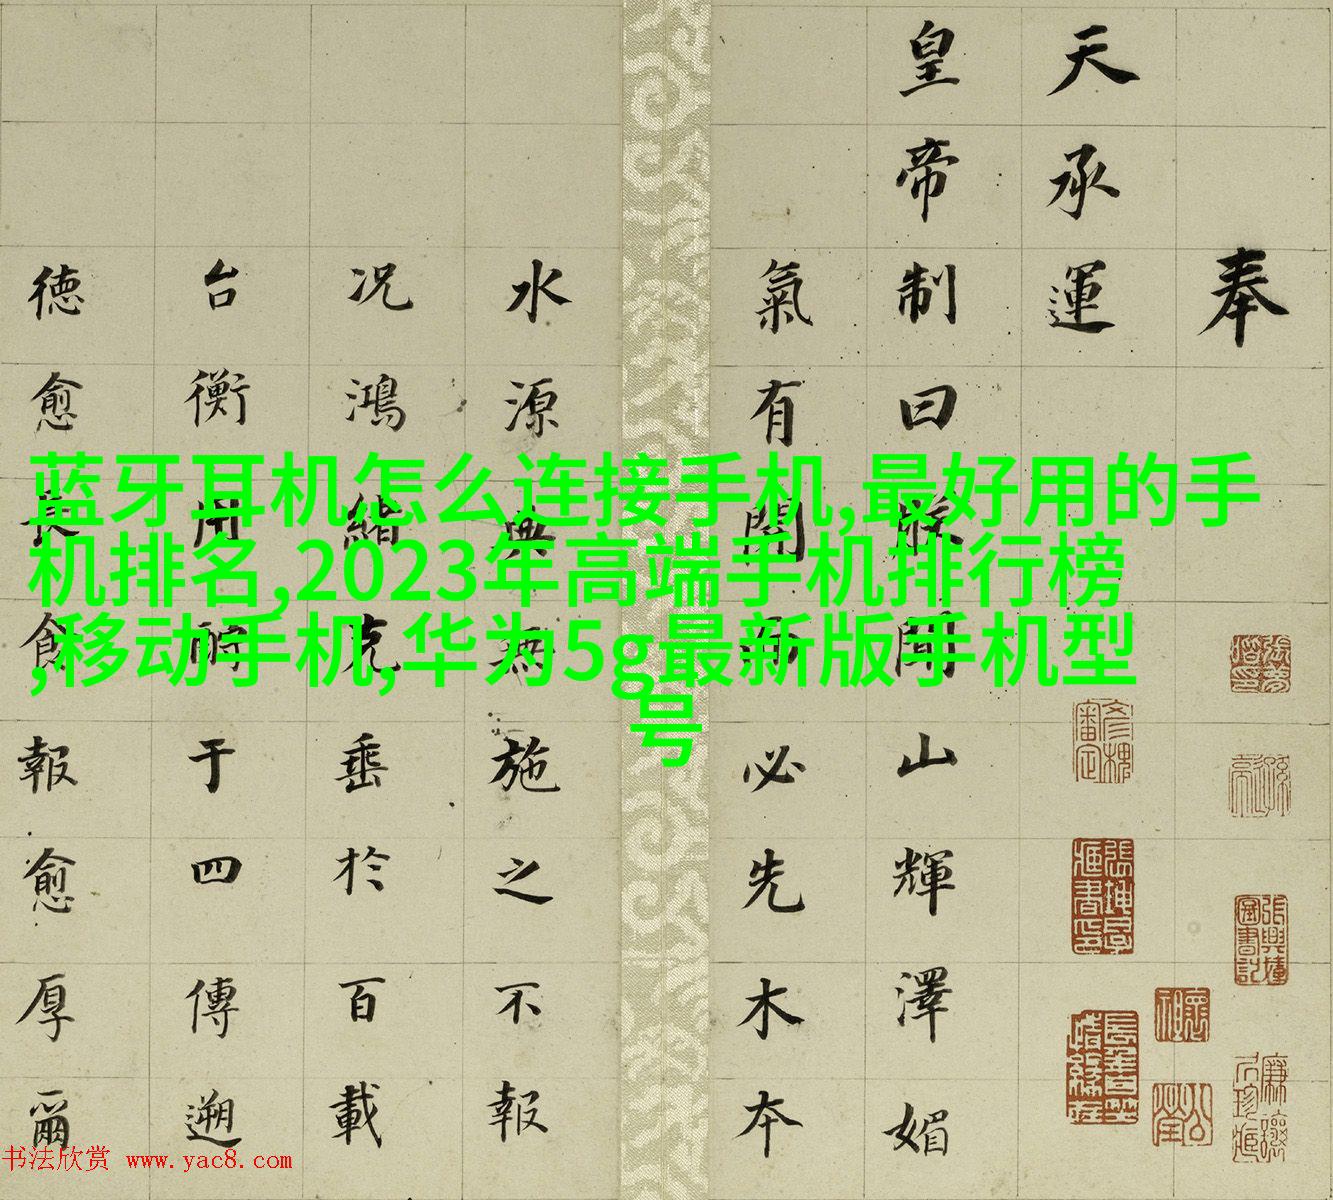 奉
天承運
皇帝制曰朕聞山輝澤媚
氣有開必先木本
水源典無施之不報
况鴻緒克垂於百載
台衡用于四傳遡
德愈長食報愈厚爾
蓝牙耳机怎么连接手机,最好用的手
机排名,2023年高端手机排行榜
,移动手机,华为5g最新版手机型
号
书法欣赏 www.yac8.com